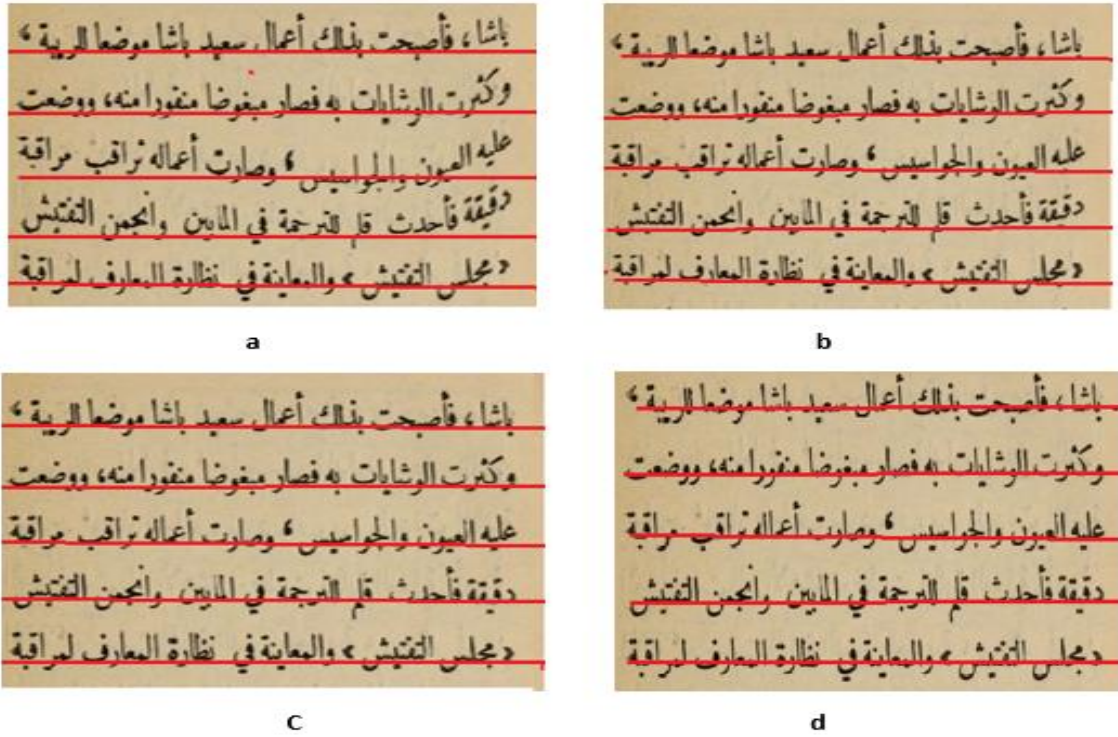 باشا، فأصبحت بذلك أعمال سعيد باشا موضعا للريبة،
وكثرت الوشايات به فصار مبغوضا منفورا منه، ووضعت
عليه العيون والجواسيس، وصارت أعماله تراقب مراقبة
دقيقة فأحدث قلم للترجمة في المابين وانجمن التفتيش
«مجلس التفتيش» والمعاينة في نظارة المعارف لمراقبة
a
باشا، فأصبحت بذلك أعمال سعيد باشا موضعا للريبة،
وكثرت الوشايات به فصار مبغوضا منفورا منه، ووضعت
عليه العيون والجواسيس، وصارت أعماله تراقب مراقبة
دقيقة فأحدث قلم للترجمة في المابين وانجمن التفتيش
«مجلس التفتيش» والمعاينة في نظارة المعارف لمراقبة
b
باشا، فأصبحت بذلك أعمال سعيد باشا موضعا للريبة،
وكثرت الوشايات به فصار مبغوضا منفورا منه، ووضعت
عليه العيون والجواسيس، وصارت أعماله تراقب مراقبة
دقيقة فأحدث قلم للترجمة في المابين وانجمن التفتيش
«مجلس التفتيش» والمعاينة في نظارة المعارف لمراقبة
C
باشا، فأصبحت بذلك أعمال سعيد باشا موضعا للريبة،
وكثرت الوشايات به فصار مبغوضا منفورا منه، ووضعت
عليه العيون والجواسيس، وصارت أعماله تراقب مراقبة
دقيقة فأحدث قلم للترجمة في المابين وانجمن التفتيش
«مجلس التفتيش» والمعاينة في نظارة المعارف لمراقبة
d